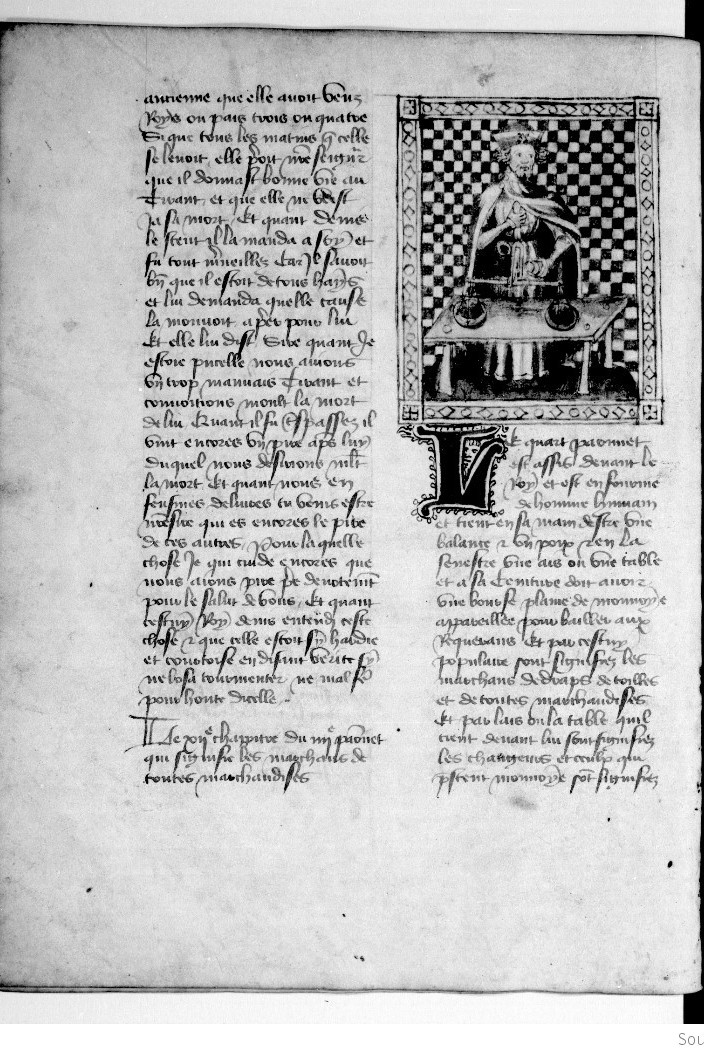 ancienne que elle avoit veuz
Roys ou pais trois ou quatre
Si que tous les matins q̄ celle
se levoit elle p̄oit nr̄e seignr̄
que il donnast bonne vie au
Tirant et que elle ne veist
Ja sa mort Et quant denis
le sceut il la manda a soy et
fu tout mr̄veillez Car Il savoit
bn̄ que il estoit de tous hays
et lui demanda quelle cause
la mouvoit a p̄er pour lui
Et elle lui dist Sire quant Je
estoie pucelle nous avions
vn trop mauvais Tirant et
convoitions moult la mort
de lui Quant il fu t̄spassez il
vint encores vn pire ap̄s luy
duquel nous desirions mlt̄
la mort Et quant nous en
feusmes delivres tu venis estre
nr̄e sire qui es encores le pire
de ces autres Pour laquelle
chose Je qui cuide encores que
nous aions pire p̄e devotemt̄
pour le salut de vous Et quant
cestuy Roy denis entendi ceste
chose et que celle estoit sy hardie
et courtoise en disant verite sy
ne losa tourmenter ne mal fe̅
pour honte dicelle
Le xiie chappitre du iiiie paonnet
qui signifie les marchans de
toutes marchandises
Le quart paonnet
est assis devant le
Roy et est en fourme
de homme humain
et tient en sa main destre vne
balance et vn poix et en la
senestre vne ais ou vne table
et a sa ceinture doit avoir
vne bourse plaine de monnoye
appareillee pour bailler aux
Requerans Et par cestuy
populaire sont signifiez les
marchans de draps de toilles
et de toutes marchandises
Et par lais ou la table quil
tient devant lui sont signifiez
les changeurs et ceulx qui
p̄stent monnoye sont signifiez
Sou